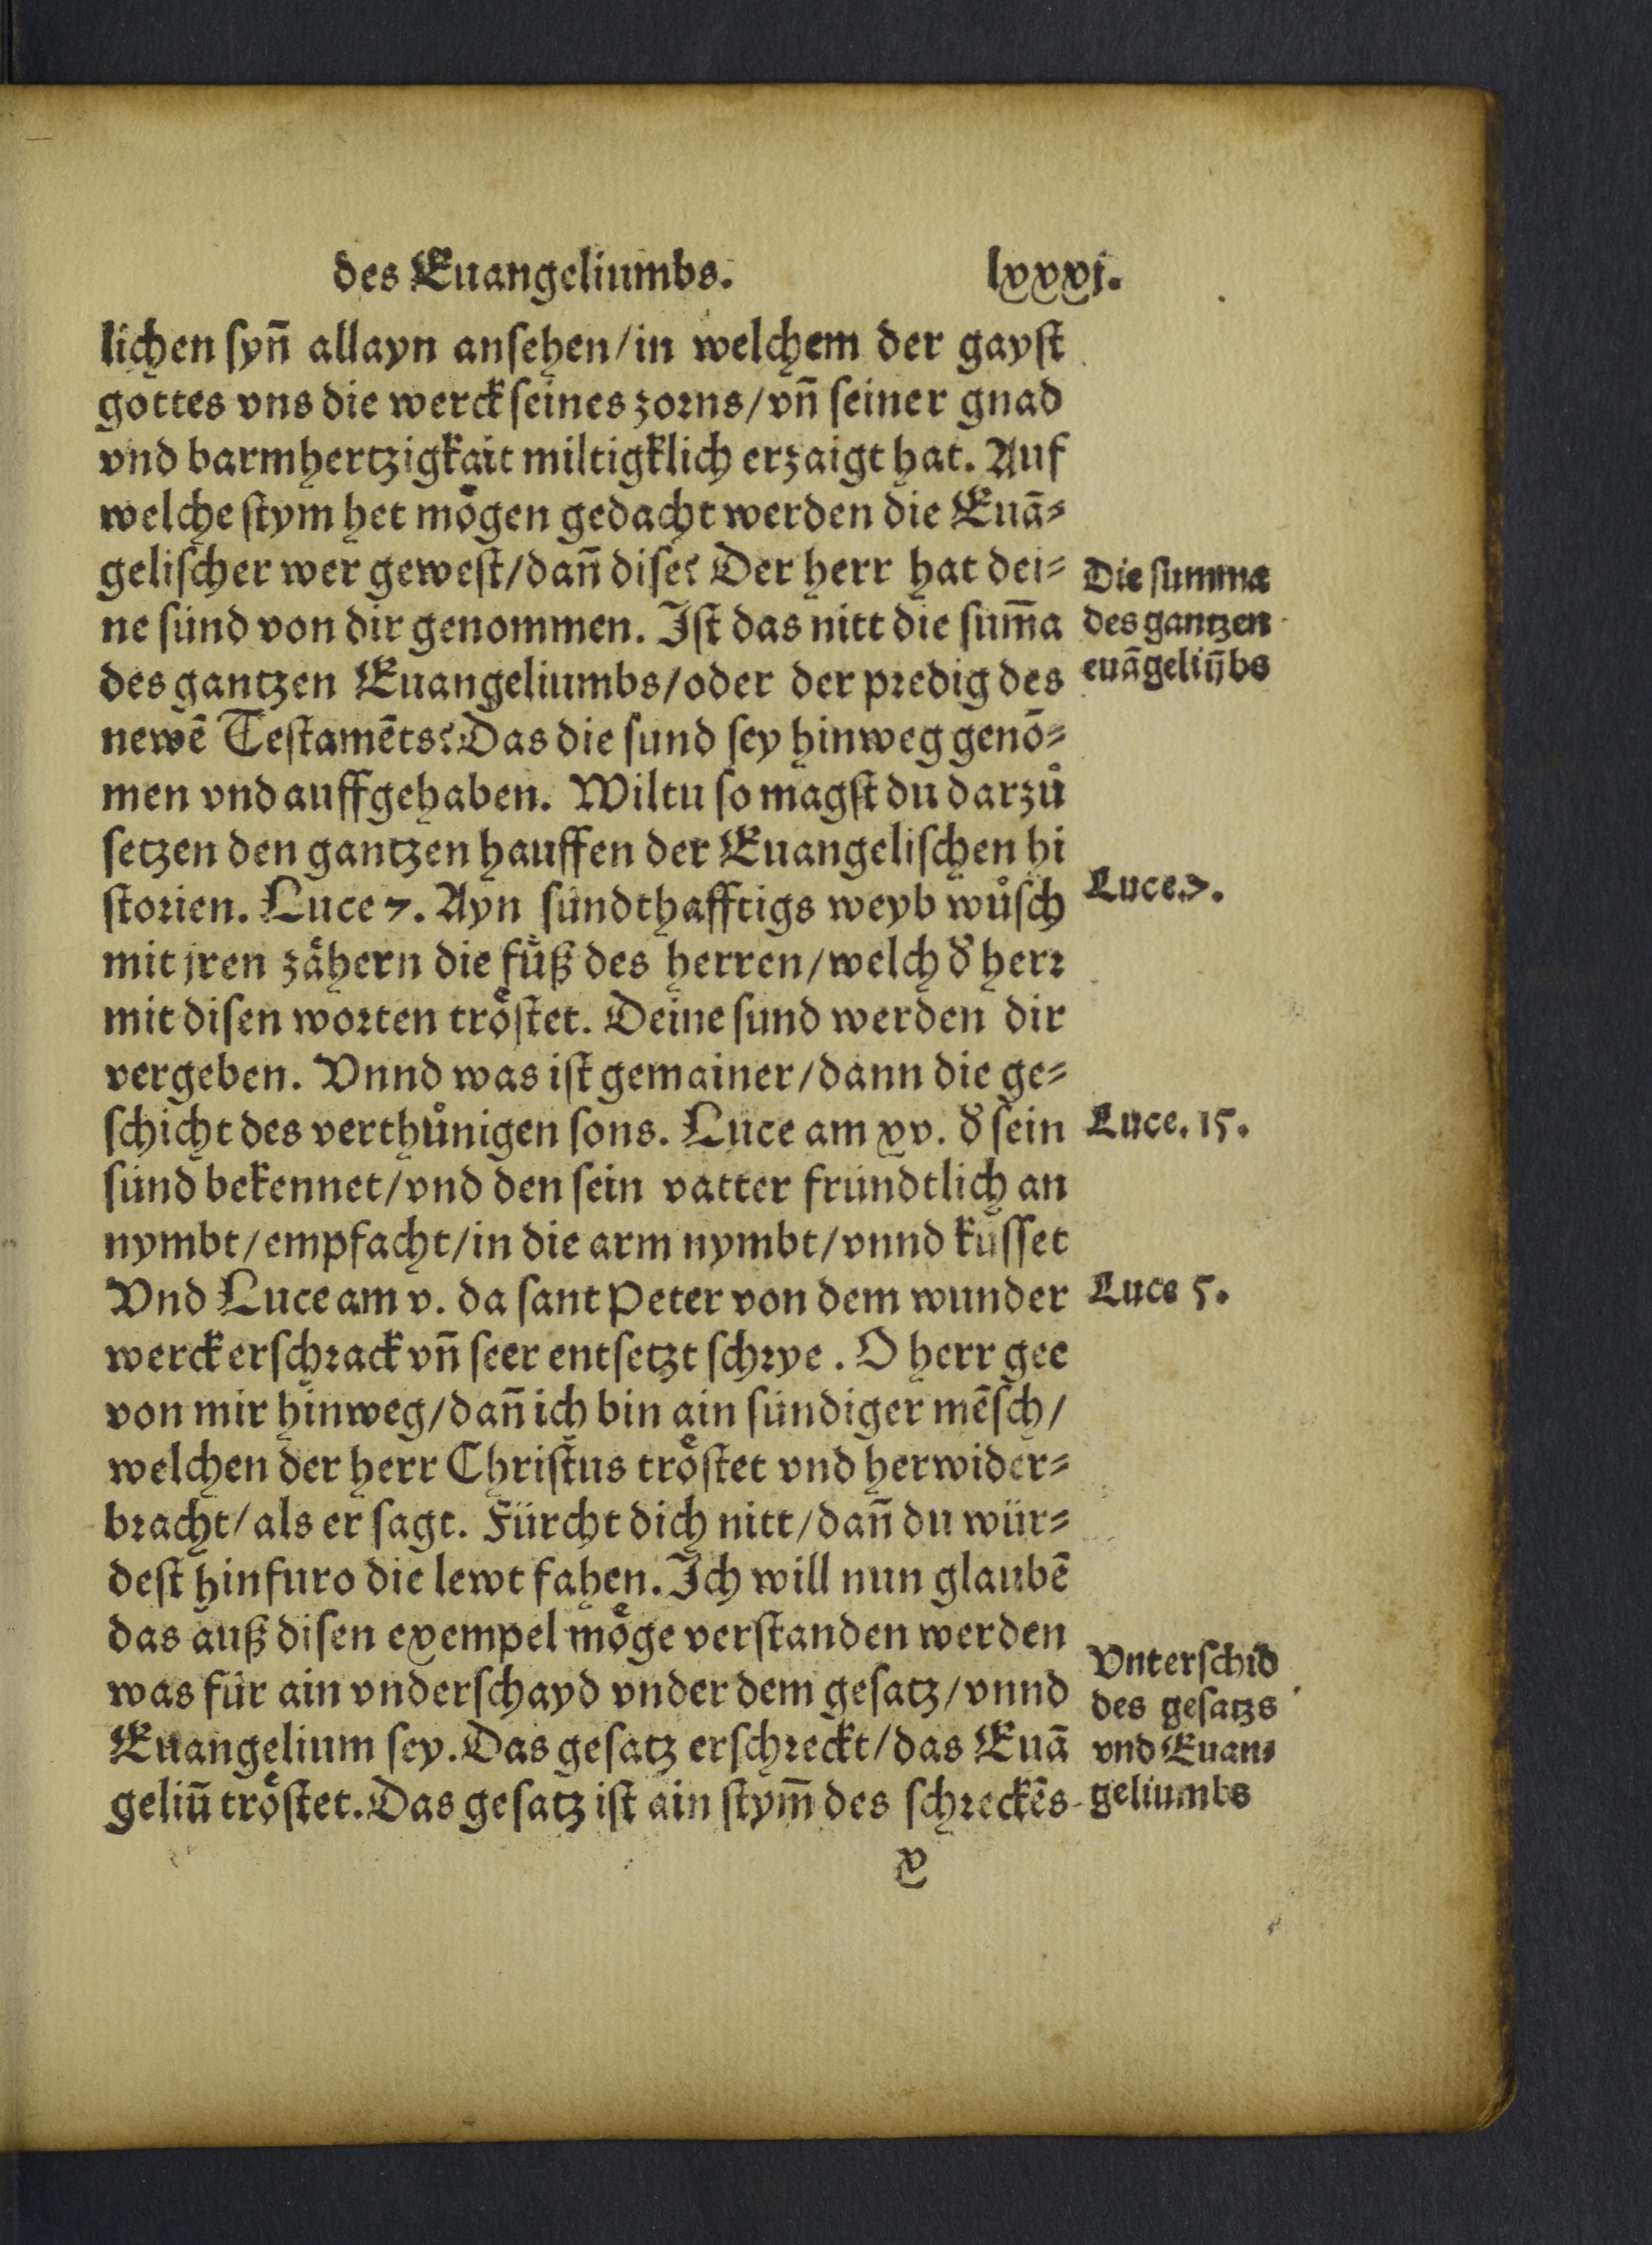 des Euangeliumbs.
lxxxj.
lichen ſyn̄ allayn anſehen/in welchem der gayſt
gottes vns die werck ſeines zoꝛns/vn̄ ſeiner gnad
vnd barmhertzigkait miltigklich erzaigt hat. Auf
welche ſtym het moͤgen gedacht werden die Euā⸗
geliſcher wer geweſt/dan̄ diſe? Der herr hat dei⸗
ne ſünd von dir genommen. Iſt das nitt die ſum̄a
des gantzen Euangeliumbs/oder der pꝛedig des
newē Teſtamēts? Das die ſund ſey hinweg genō⸗
men vnd auffgehaben. Wiltu ſo magſt du darzů
ſetzen den gantzen hauffen der Euangeliſchen hi
ſtoꝛien. Luce 7. Ayn ſündthafftigs weyb wůſch
mit jren zaͤhern die fuͤß des herren/welch ď herꝛ
mit diſen woꝛten troͤſtet. Deine ſund werden dir
vergeben. Vnnd was iſt gemainer/dann die ge⸗
ſchicht des verthůnigen ſons. Luce am xv. ď ſein
ſünd bekennet/vnd den ſein vatter fründtlich an
nymbt/empfacht/in die arm nymbt/vnnd küſſet
Vnd Luce am v. da ſant Peter von dem wunder
werck erſchꝛack vn̄ ſeer entſetzt ſchꝛye. O herr gee
von mir hinweg/dan̄ ich bin ain ſündiger mēſch/
welchen der herr Chriſtus troͤſtet vnd herwider⸗
bꝛacht/als er ſagt. Fürcht dich nitt/dan̄ du wür⸗
deſt hinfuro die lewt fahen. Ich will nun glaubē
das auß diſen exempel moͤge verſtanden werden
was für ain vnderſchayd vnder dem geſatz/vnnd
Euangelium ſey. Das geſatz erſchꝛeckt/das Euā
geliū troͤſtet. Das geſatz iſt ain ſtym̄ des ſchꝛeckēs
x
Die ſumma
des gantzen
euāgeliūbs
Luce.7.
Luce. 15.
Luce 5.
Vnterſchid
des geſatzs
vnd Euan⸗
geliumbs